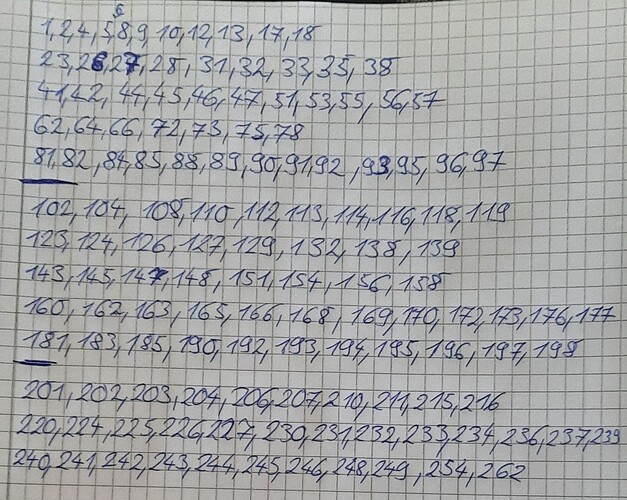 1,2,4,5,6,8,9,10,12,13,17,18
23,26,27,28,31,32,33,35,38
41,42,44,45,46,47,51,53,55,56,57
62,64,66,72,73,75,78
81,82,84,85,88,89,90,91,92,93,95,96,97
102,104,108,110,112,113,114,116,118,119
123,124,126,127,129,132,138,139
143,145,147,148,151,154,156,158
160,162,163,165,166,168,169,170,172,173,176,177
181,183,185,190,192,193,194,195,196,197,198
201,202,203,204,206,207,210,211,215,216
220,224,225,226,227,230,231,232,233,234,236,237,239
240,241,242,243,244,245,246,248,249,254,262